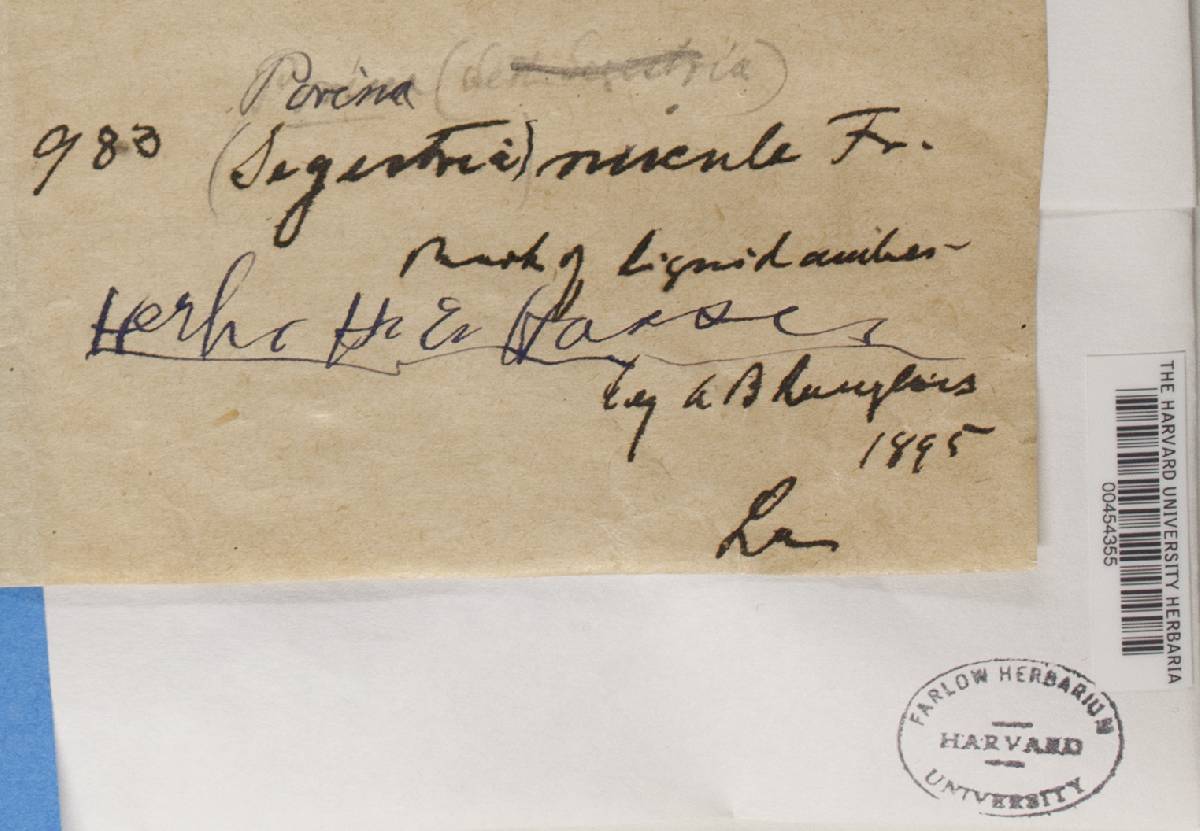 Porina
983 (Segestria) nucula Fr.
Bark of liquidamber
Herb. H. E. Hasse
Leg A B Langlois
1895
La
THE HARVARD UNIVERSITY HERBARIA
00454355
FARLOW HERBARIUM
HARVARD
UNIVERSITY